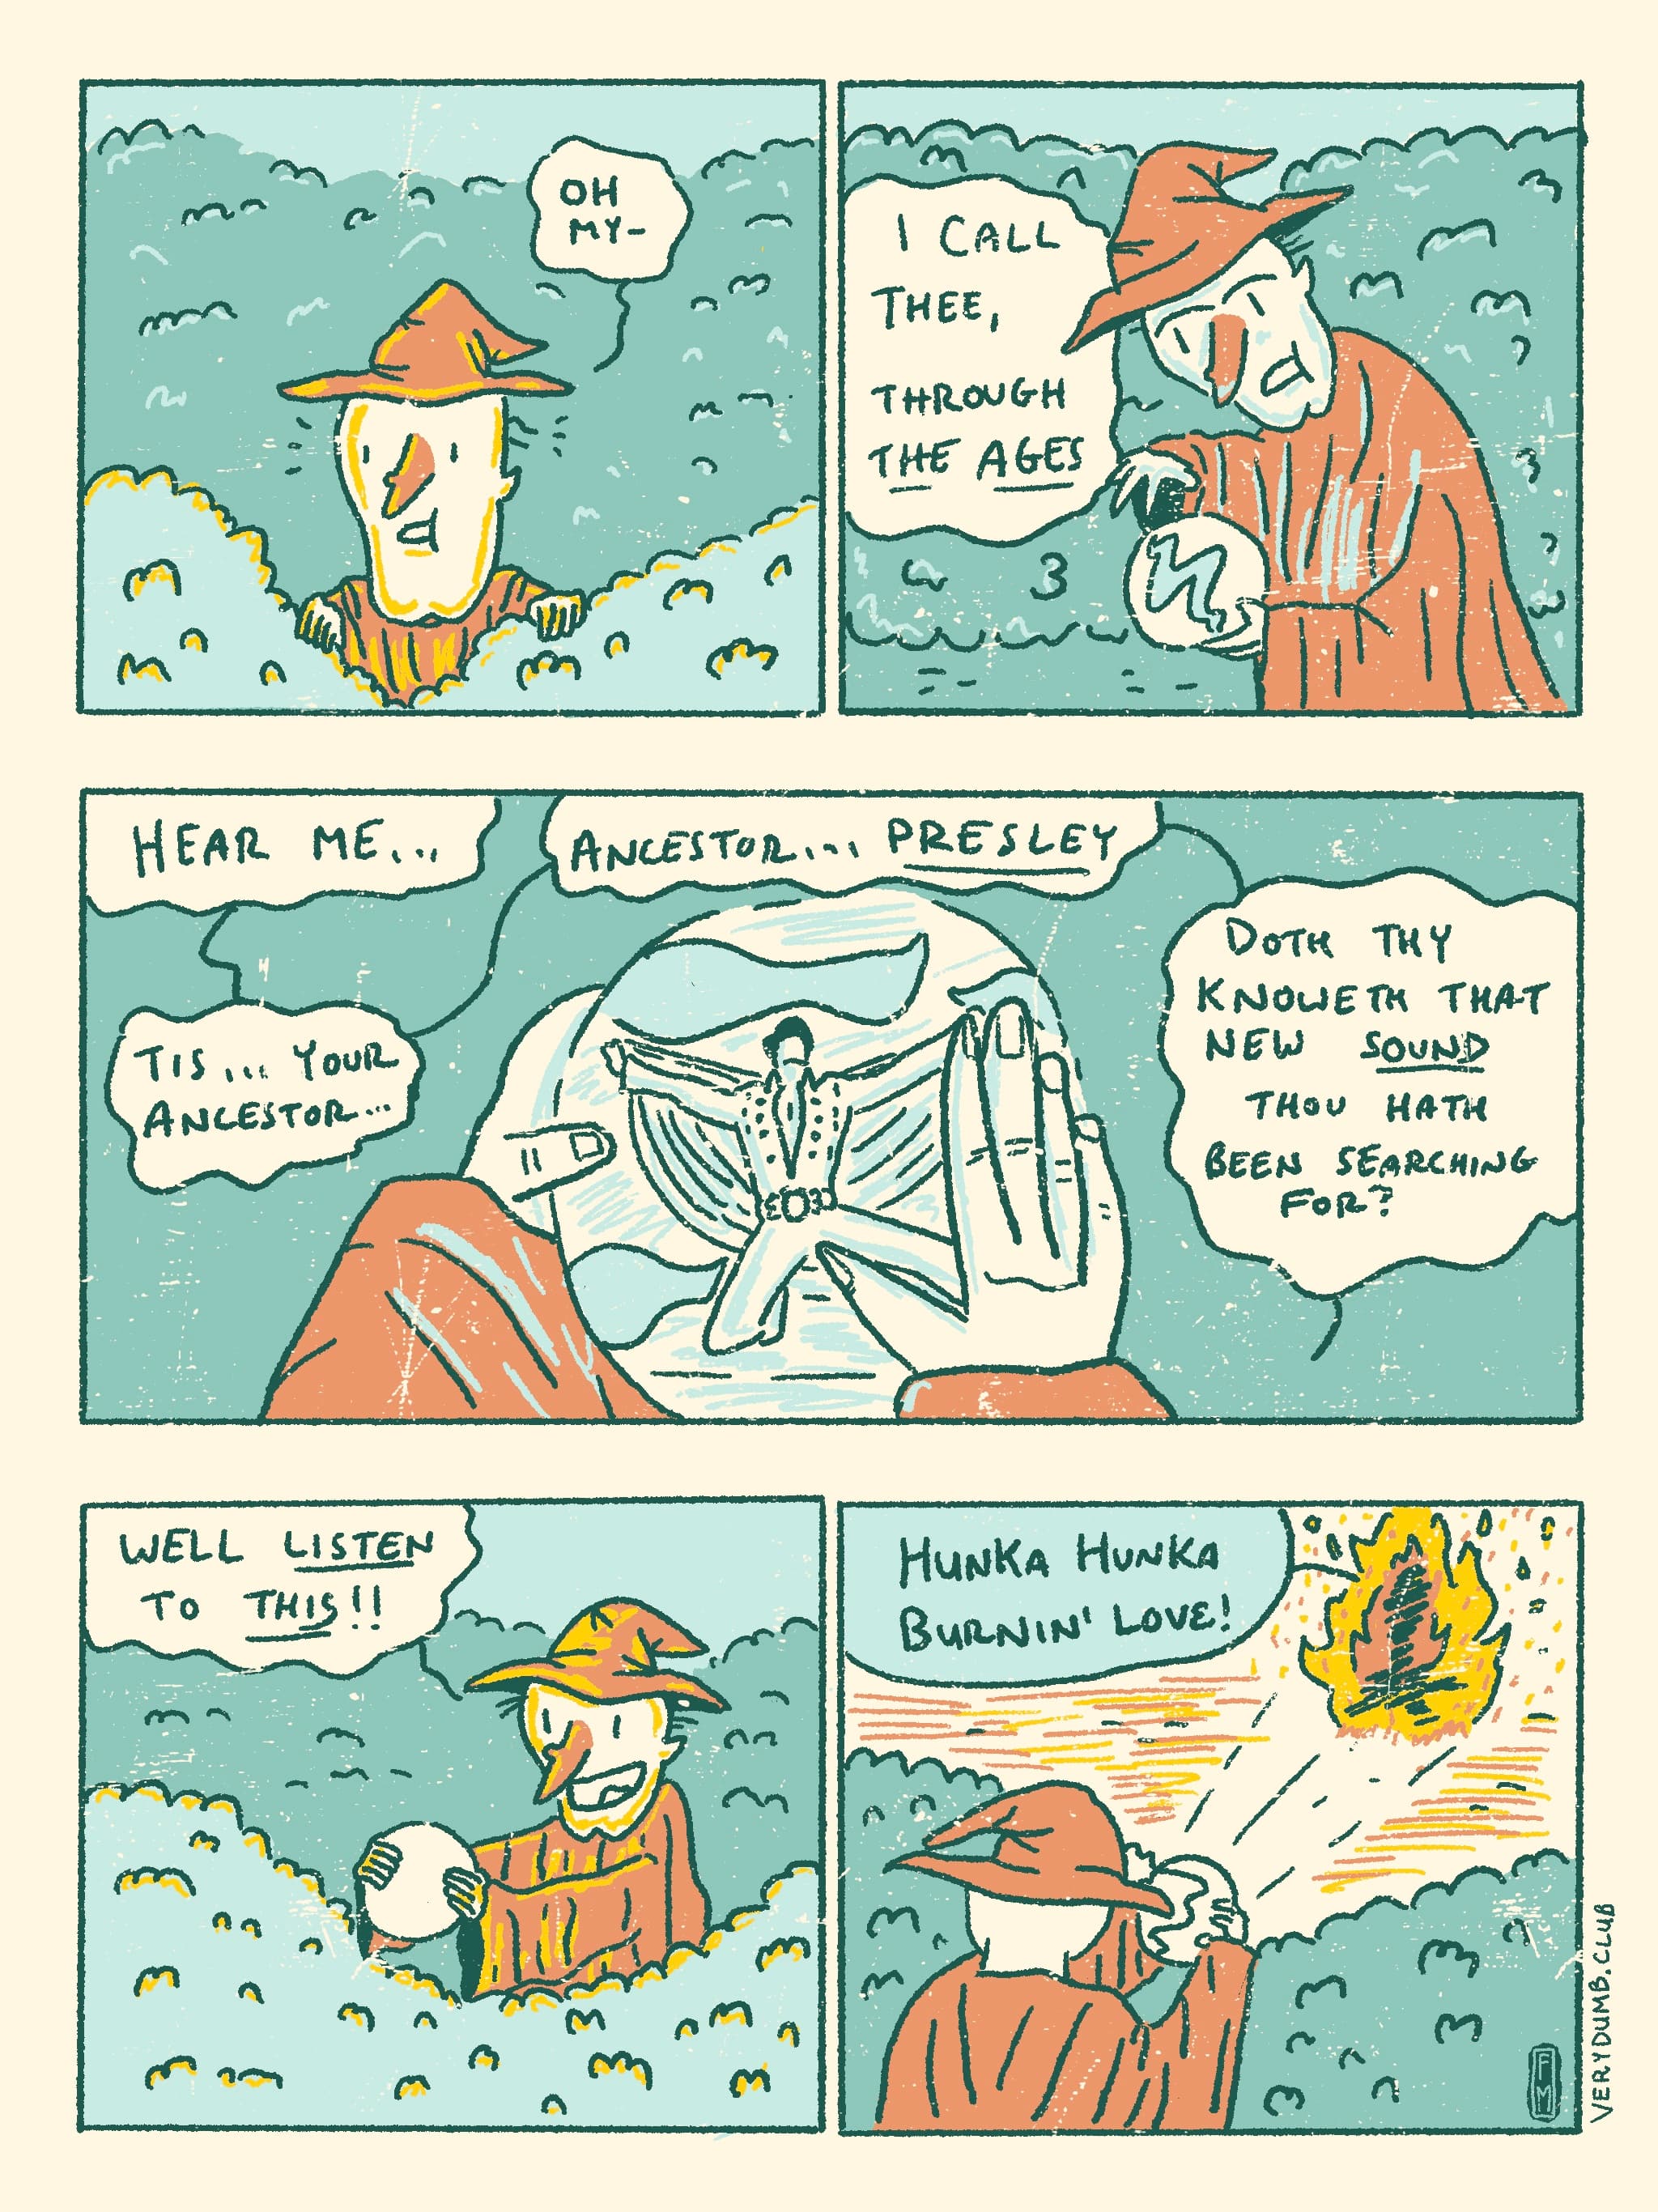 OH
MY-
I CALL
THEE,
THROUGH
THE AGES
HEAR ME...
TIS... YOUR
ANCESTOR...
ANCESTOR... PRESLEY
DOTH THY
KNOWETH THAT
NEW SOUND
THOU HATH
BEEN SEARCHING
FOR?
WELL LISTEN
TO THIS!!
HUNKA HUNKA
BURNIN' LOVE!
FM
VERYDUMB.CLUB